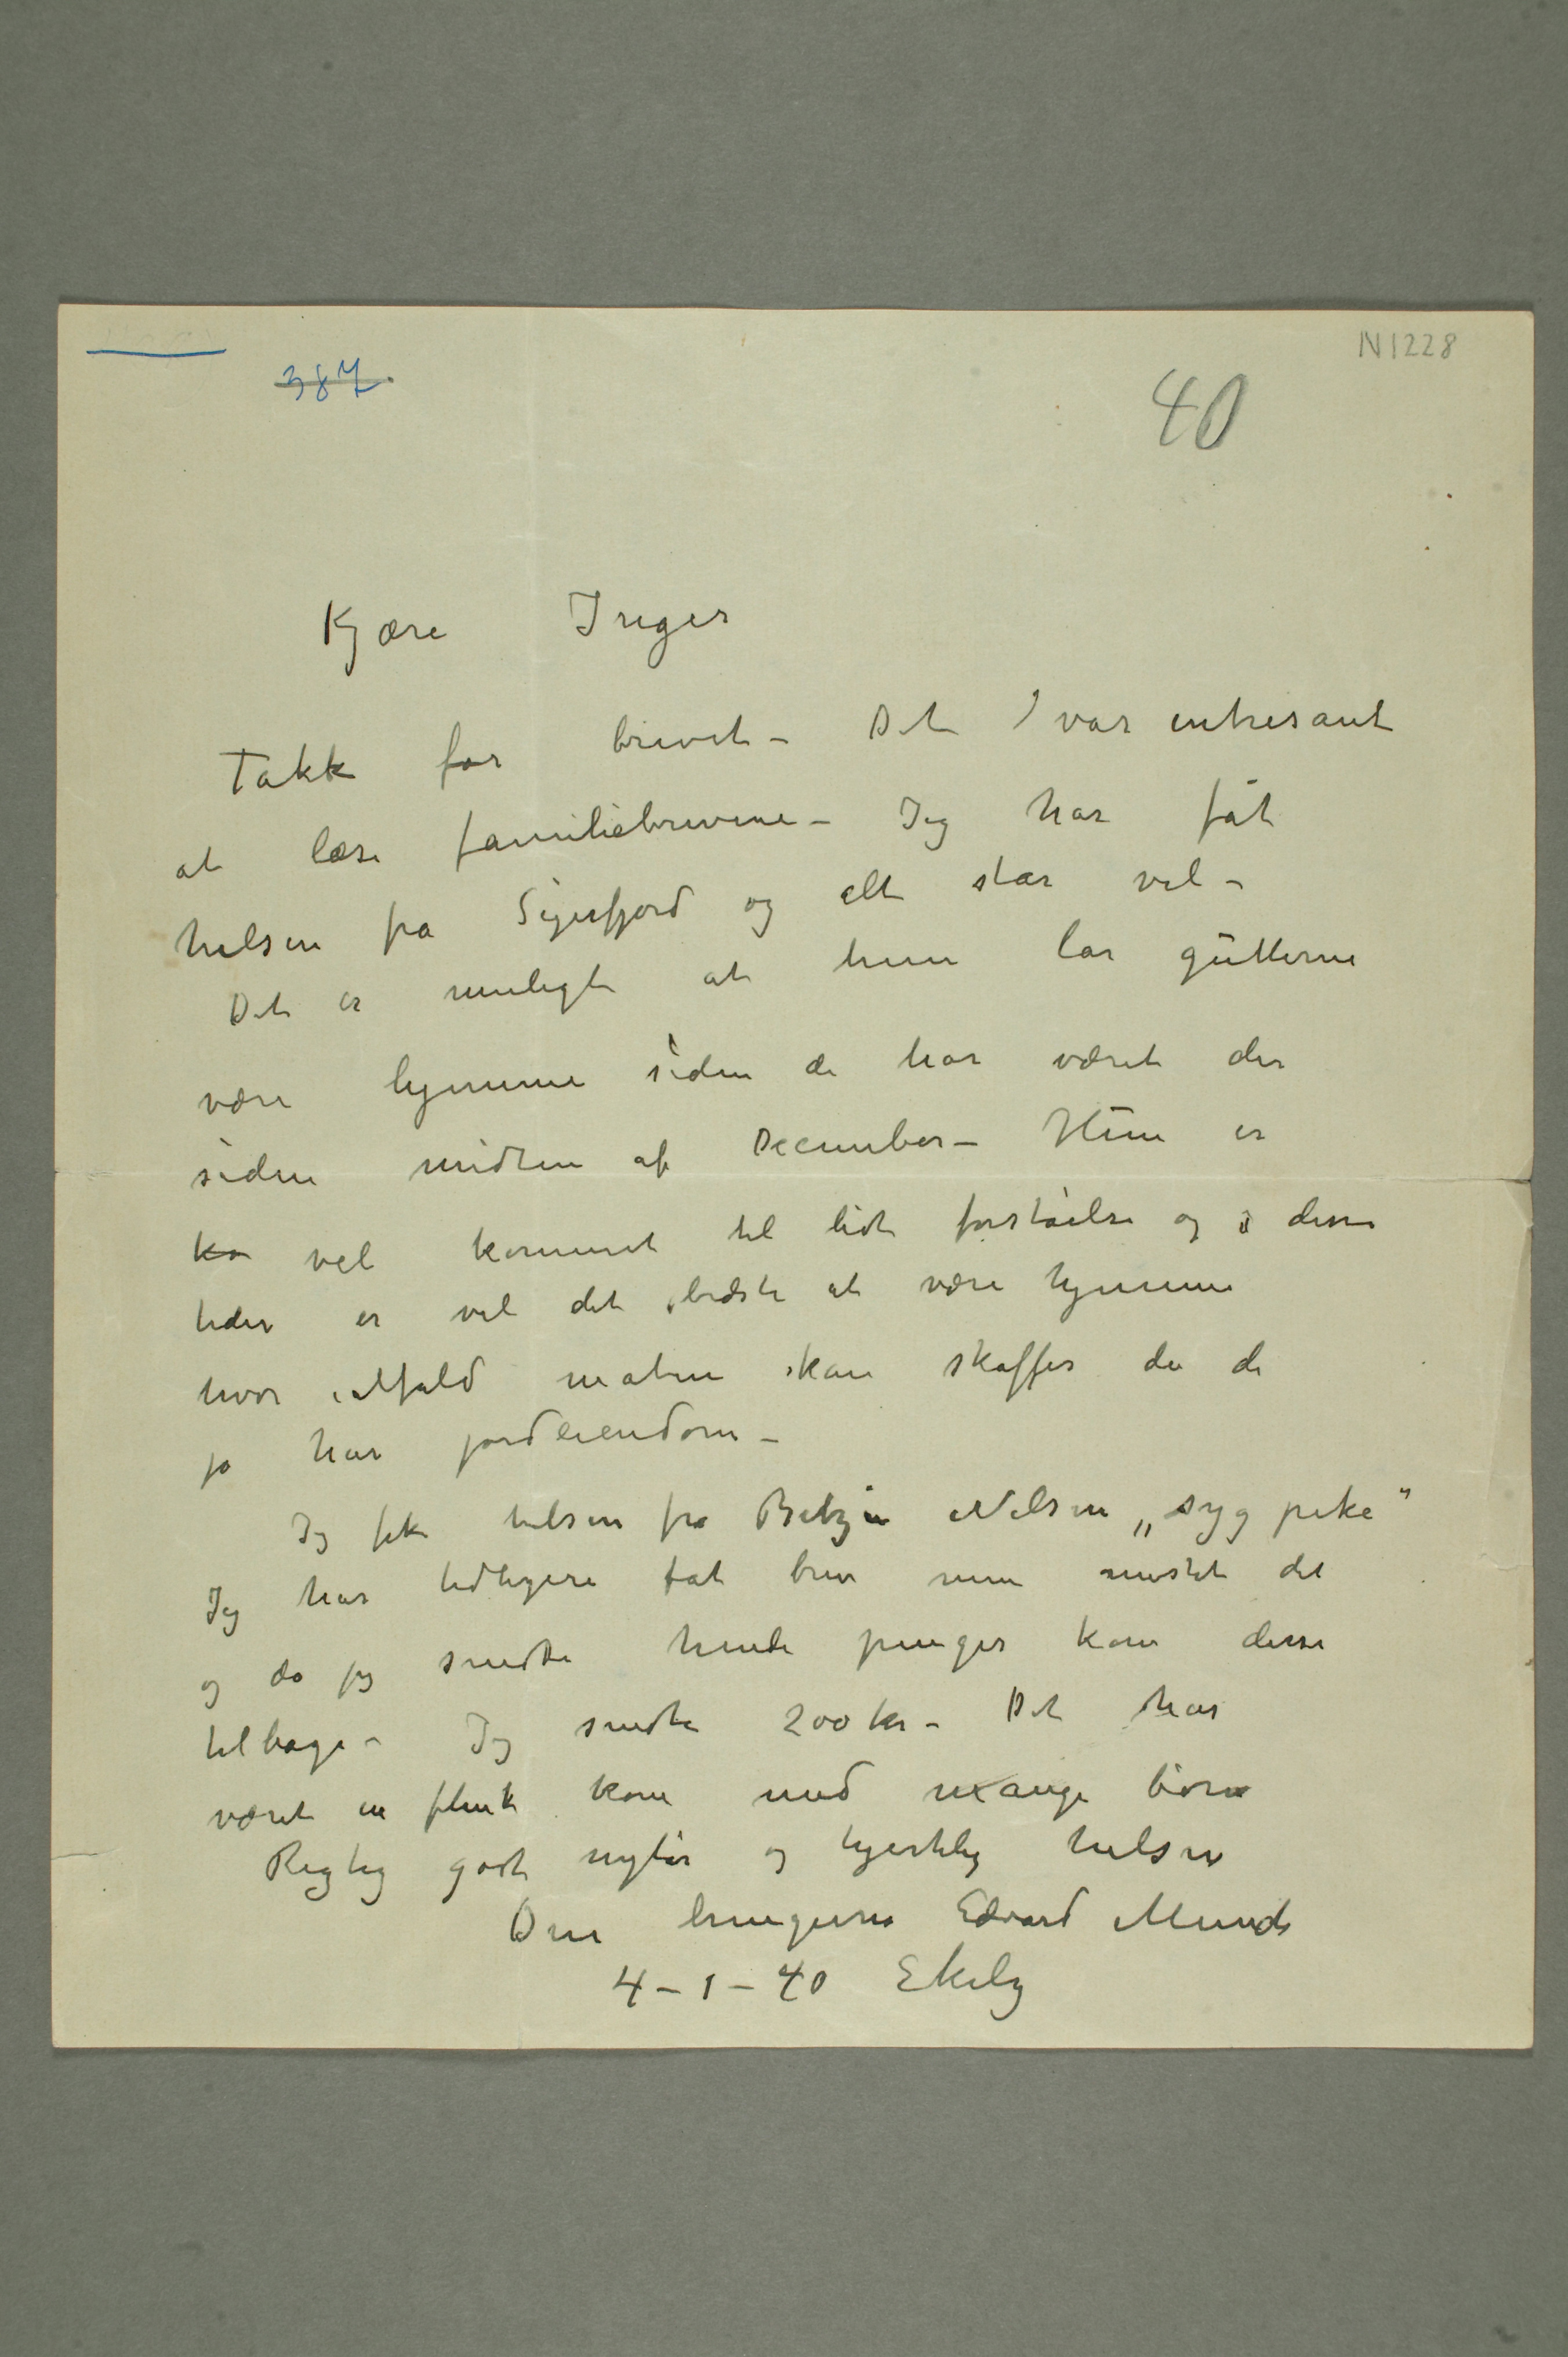 N1228
387.
40
Kjære Inger
Takk for brevet – Det var intresant
at læse familiebrevene – Jeg har fåt
hilsen fra Sigerfjord og alt står vel –
Det er muligt at hun lar gutterne
være hjemme siden de har været der
siden midten af December – Hun er
ko vel kommet til lidt forståelse og i disse
tider er vel det bedste at være hjemme
hvor ialfald maten kan skaffes da de
jo har jordeiendom –
Jeg fik hilsen fra Betzy Nilsen „syg pike"
Jeg har tidligere fåt brev men mistet det
og da jeg sendte hende penger kom disse
tilbage – Jeg sendte 200 kr – Det har
været en flink kone med mange børn
Rigtig godt nytår og hjertelig hilsen
Din hengivne Edvard Munch
4 – 1 – 40 Ekely